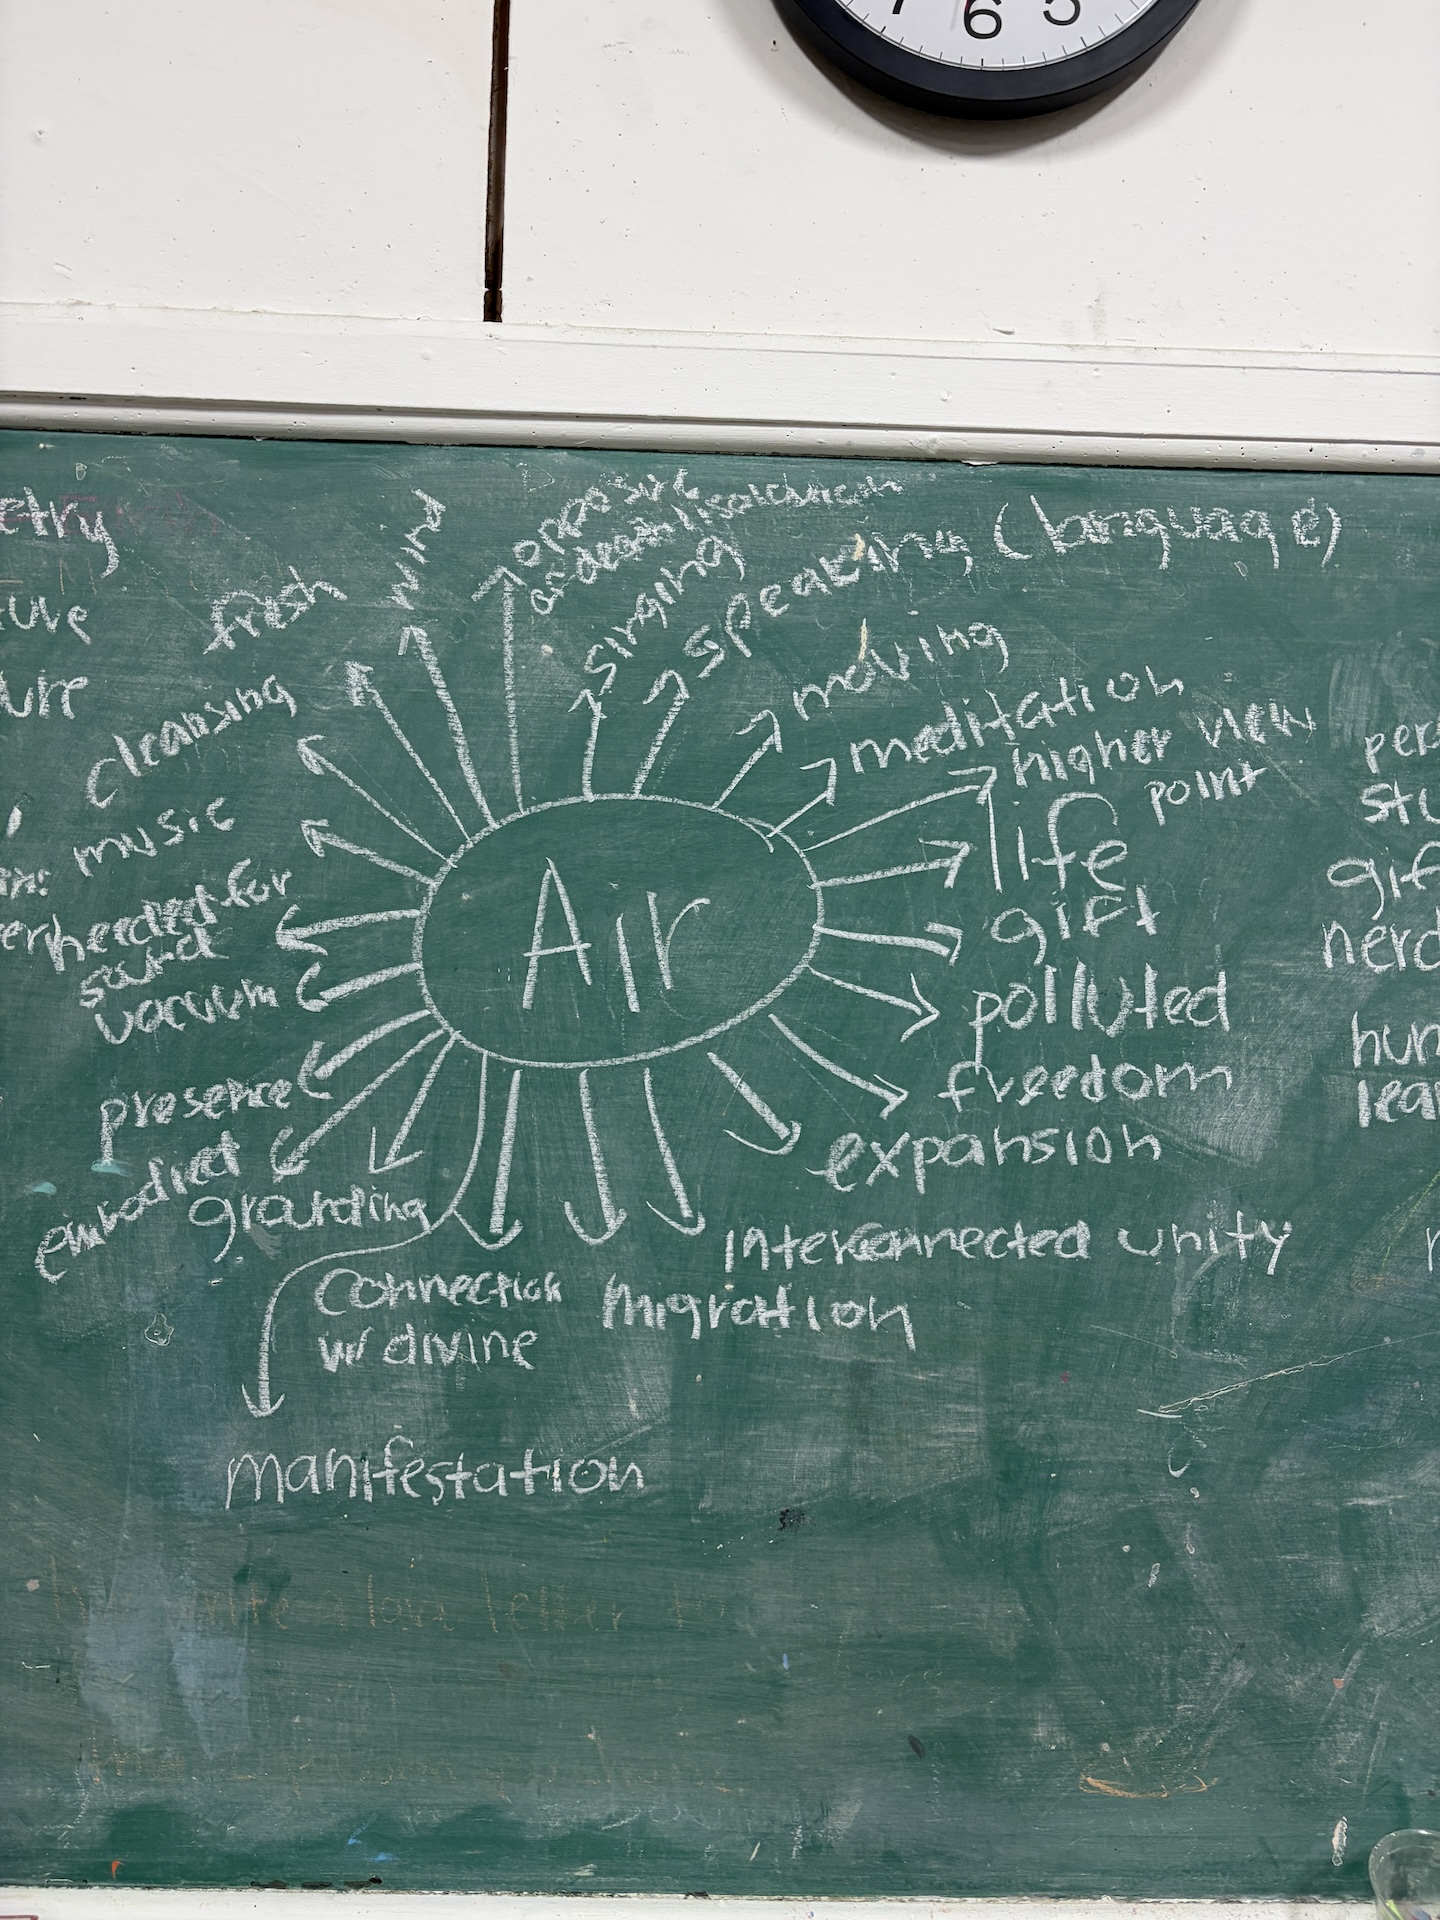 7 6 5
etry
ture
ure
wind
fresh
cleansing
music
needed for
sound
vacuum
presence
embodied
grounding
opposite
singing
speaking (language)
moving
meditation
higher view
point
life
gift
polluted
freedom
expansion
interconnected unity
migration
connection
w/ divine
manifestation
Air
per
stu
gif
nerd
hun
lea